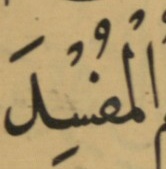 الْمُفْسِدَ